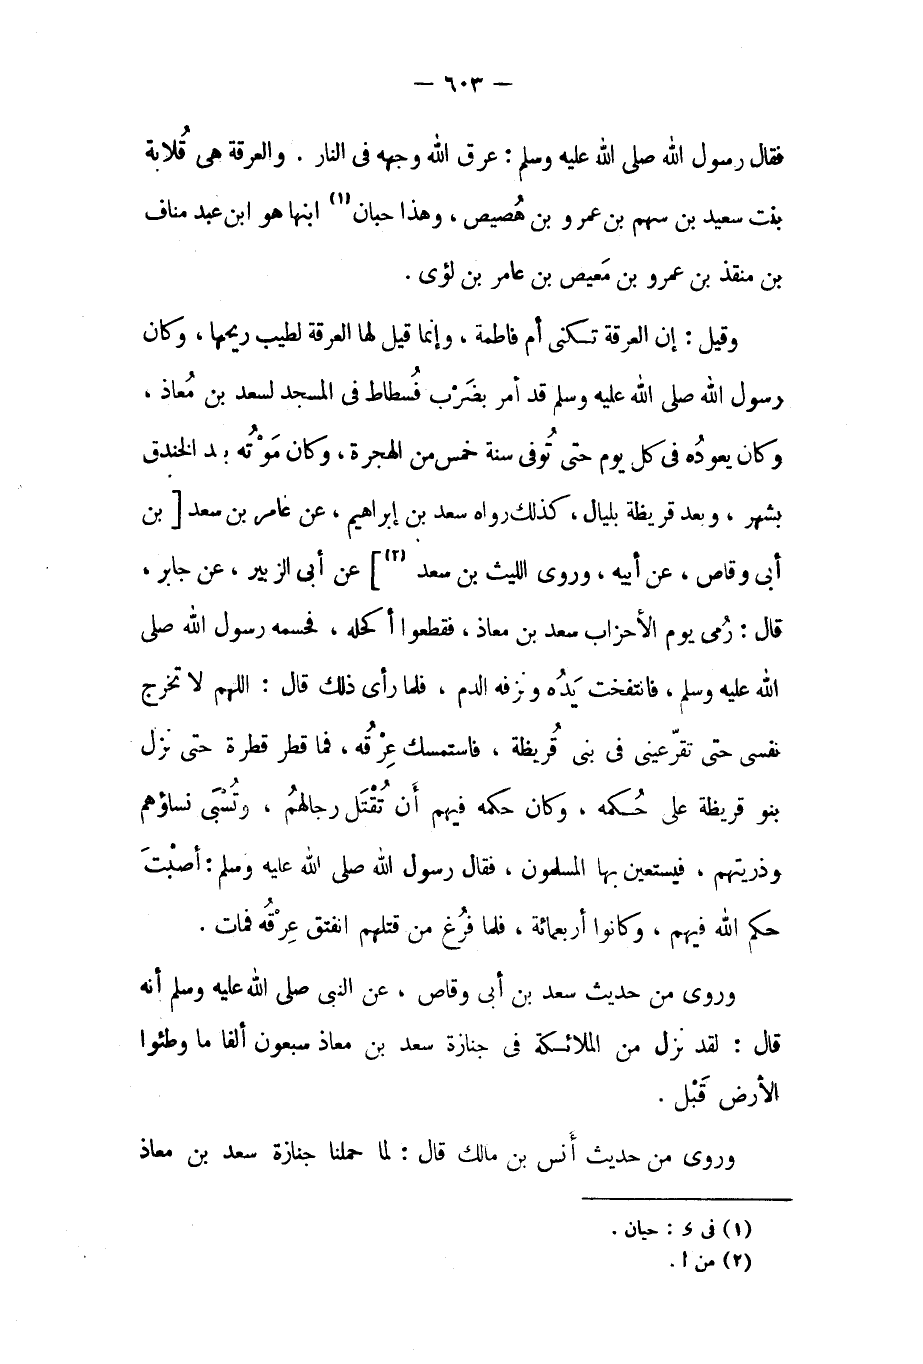 — ٦٠٣ —
فقال رسول الله صلى الله عليه وسلم : عرق الله وجهه فى النار . والعرقة هى قُلابة
بنت سعيد بن سهم بن عمرو بن هُصيص ، وهذا حبان (١) ابنها هو ابن عبد مناف
بن منقذ بن عمرو بن مَعيص بن عامر بن لؤى .
وقيل : إن العرقة تكنى أم فاطمة ، وإنما قيل لها العرقة لطيب ريحها ، وكان
رسول الله صلى الله عليه وسلم قد أمر بضَرْب فُسطاط فى المسجد لسعد بن مُعاذ ،
وكان يعودُه فى كل يوم حتى تُوفى سنة خمس من الهجرة ، وكان مَوْتُه بعد الخندق
بشهر ، وبعد قريظة بليال ، كذلك رواه سعد بن إبراهيم ، عن عامر بن سعد [ بن
أبى وقاص ، عن أبيه ، وروى الليث بن سعد (٢) ] عن أبى الزبير ، عن جابر ،
قال : رُمى يوم الأحزاب سعد بن معاذ ، فقطعوا أكحله ، فحسمه رسول الله صلى
الله عليه وسلم ، فانتفخت يَدُه ونزفه الدم ، فلما رأى ذلك قال : اللهم لا تخرج
نفسى حتى تقرّ عينى فى بنى قُريظة ، فاستمسك عِرْقُه ، فما قطر قطرة حتى نزل
بنو قريظة على حُكمه ، وكان حكمه فيهم أَن تُقْتَل رجالهمُ ، وتُسْبَى نساؤهم
وذريتهم ، فيستعين بها المسلمون ، فقال رسول الله صلى الله عليه وسلم : أصبْتَ
حكم الله فيهم ، وكانوا أربعمائة ، فلما فرُغ من قتلهم انفتق عِرْقُه فمات .
وروى من حديث سعد بن أبى وقاص ، عن النبى صلى الله عليه وسلم أنه
قال : لقد نزل من الملائكة فى جنازة سعد بن معاذ سبعون ألفا ما وطئوا
الأرض قَبْل .
وروى من حديث أَنس بن مالك قال : لما حملنا جنازة سعد بن معاذ
(١) فى ى : حبان .
(٢) من أ .